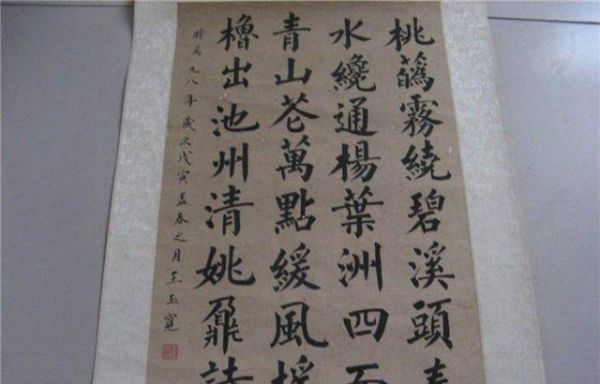 桃蘤霧繞碧溪頭春
水纔通楊葉洲四面
青山花萬點緩風搖
櫓出池州清姚鼐詩
時為九八年歲次戊寅孟春之月王玉寬